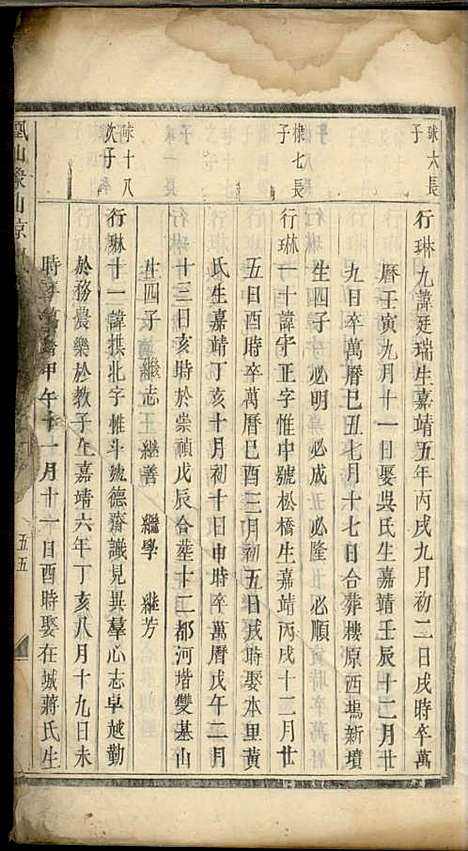 球六長子
行琳九諱廷瑞生嘉靖五年丙戌九月初二日戌時卒萬
曆壬寅九月十一日娶吳氏生嘉靖壬辰十二月廿
九日卒萬曆己丑七月十七日合葬樓原西塢新墳
生四子 必明 必成 必隆 必順
棣七長子
行琳一十諱宇正字惟中號松橋生嘉靖丙戌十二月廿
五日酉時卒萬曆己酉三月初五日戌時娶本里黃
氏生嘉靖丁亥十月初十日申時卒萬曆戊午二月
十三日亥時於崇禎戊辰合葬十二都河堦雙墓山
生四子 繼志 繼善 繼學 繼芳
球十八次子
行琳十一諱拱北字惟斗號德齋識見異羣心志卓越勤
於務農樂於教子生嘉靖六年丁亥八月十九日未
時 甲午十一月十一日酉時娶在城蔣氏生
五五